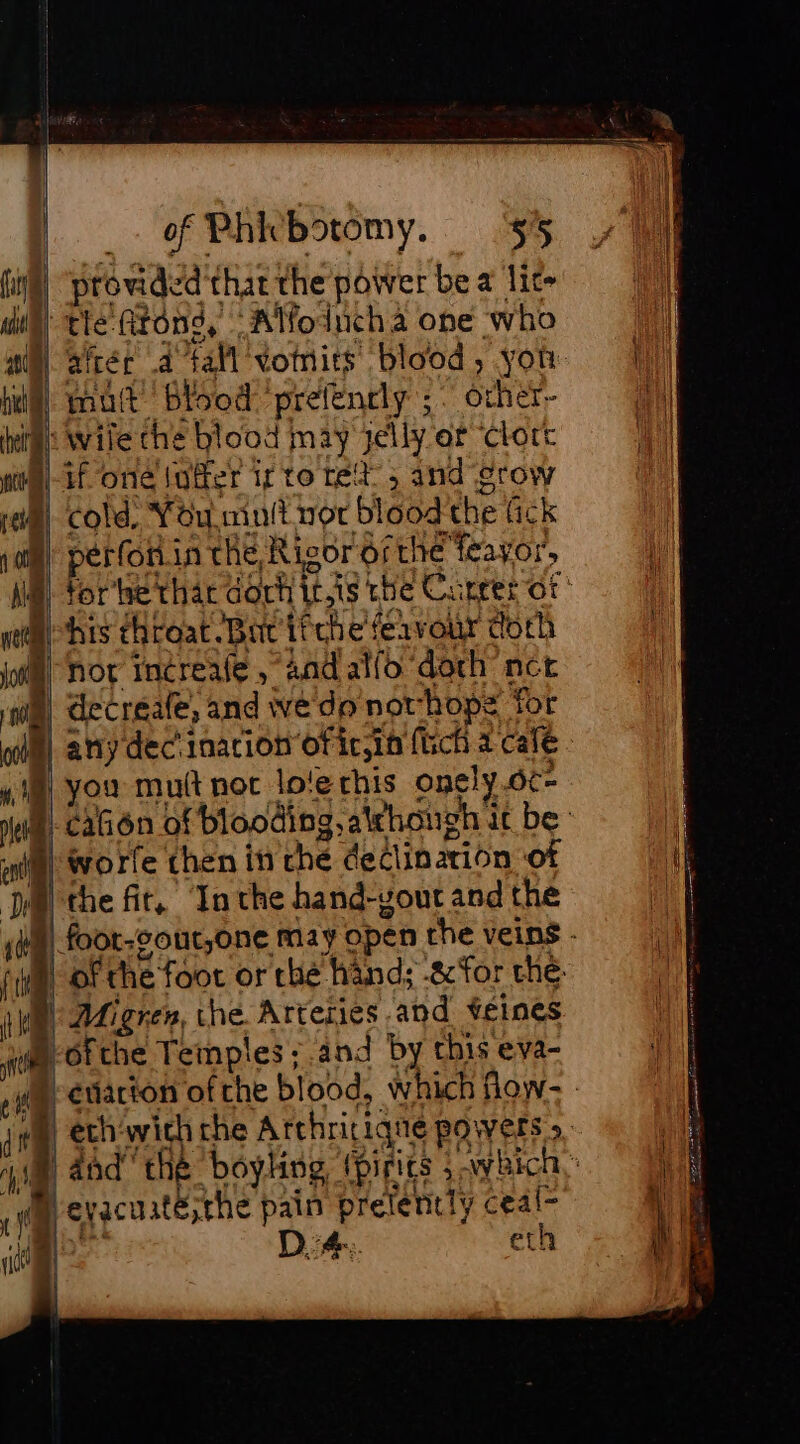 of Phlebotomy. 55
provided that the power be a lit-
tle ſtrong. Alſo ſuch a one who
after a fall vomits blood, you
muſt blood preſently; other-
wiſe the blood may jelly or clott
if one ſuffer it to reſt, and grow
cold. You muſt not blood the ſick
perſon in the Rigor of the feavor,
for he that doth it, is the Cutter of
his throat. But if the feavour doth
not increaſe, and alſo doth not
decreaſe, and we do not hope for
any declination of it, in ſuch a caſe
you muſt not loſe this onely oc-
caſion of blooding, although it be
worſe then in the declination of
the fit. In the hand-gout and the
foot-gout, one may open the veins
of the foot or the hand; & for the
Migren, the Arteries and Veines
of the Temples; and by this eva-
cuation of the blood, which flow-
eth with the Arthritique powers,
and the boyling ſpirits, which
evacuate, the pain preſently ceaſ-
D 4 eth